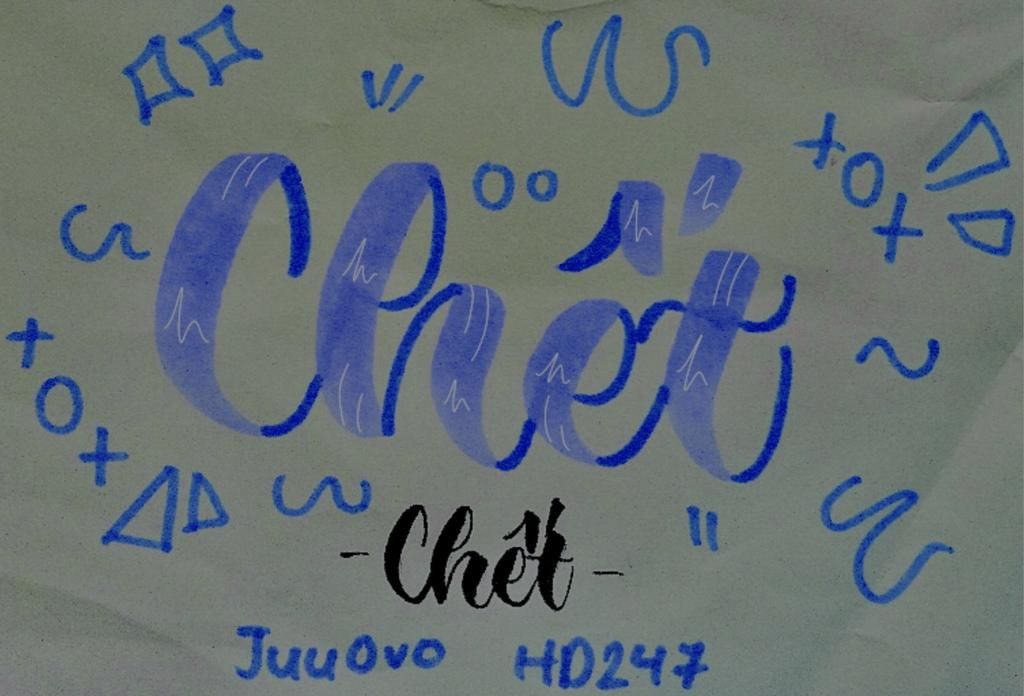 Chết
- Chết -
JuuOvo HD247